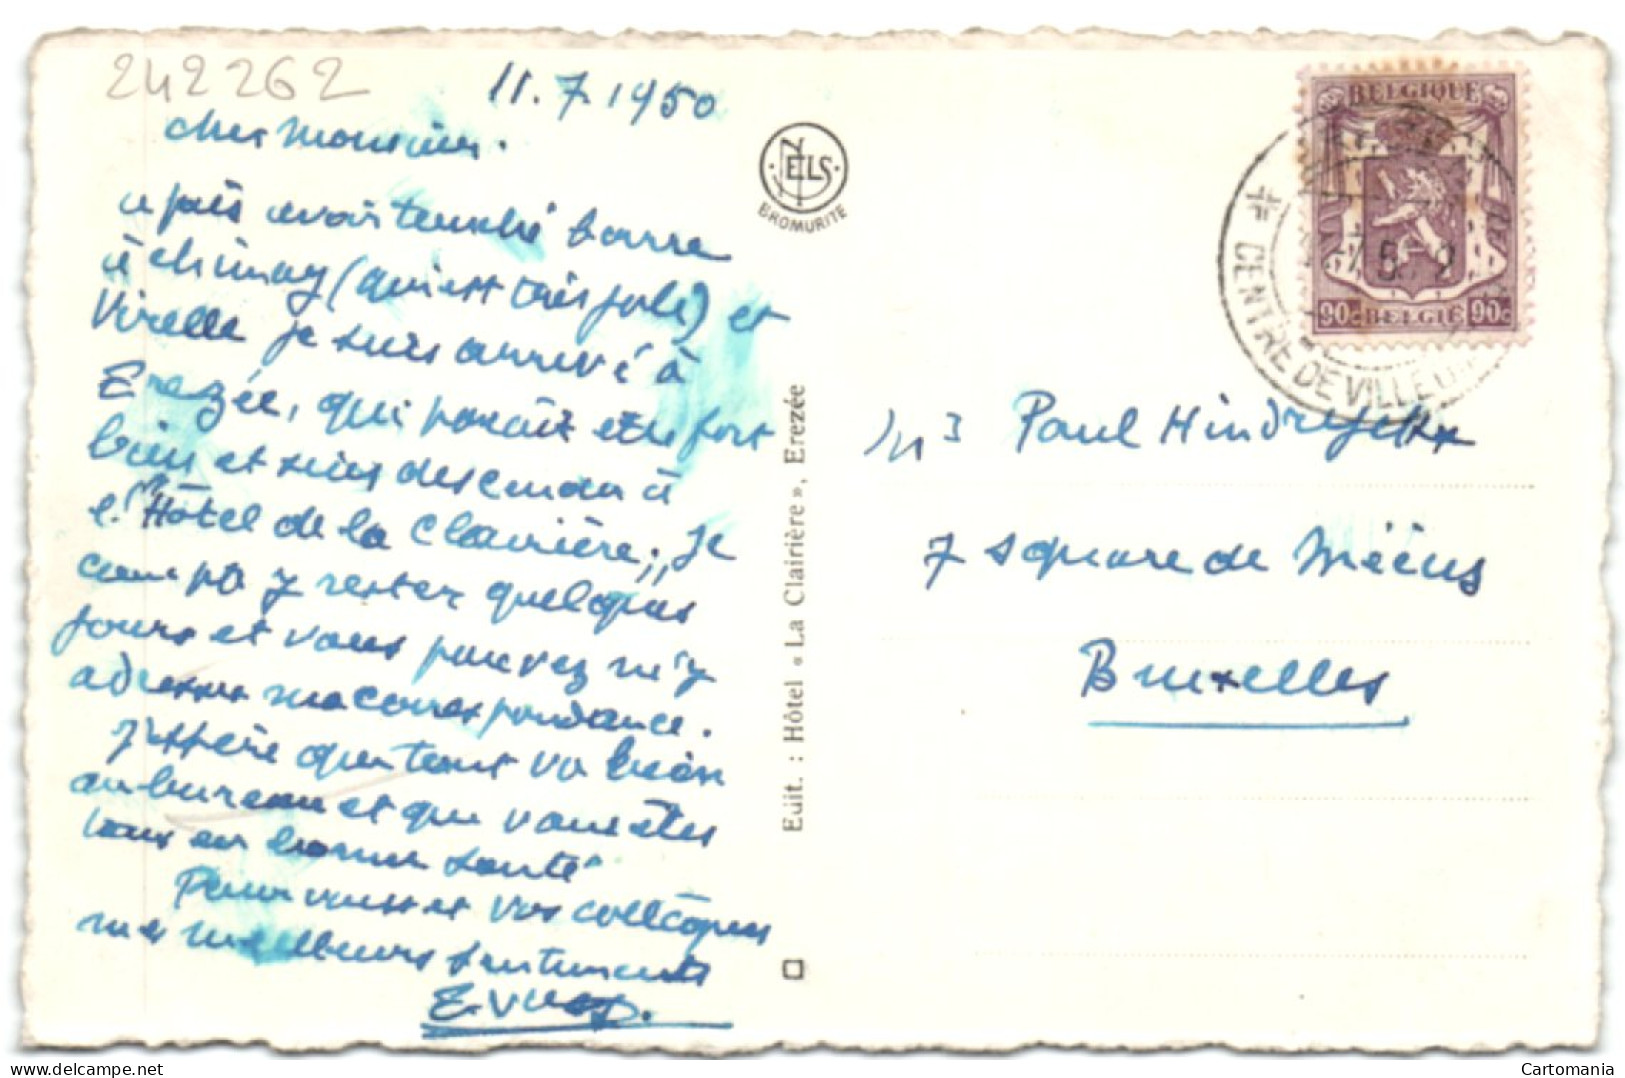 242262
11.7.1950
cher monsieur.
après avoir touché barre
à chimay (qui est très joli) et
Virelle je suis arrivé à
Erezée, qui parait être fort
bien et suis descendu à
l'Hôtel de la Clairière; je
compte y rester quelques
jours et vous pouvez m'y
adresser ma correspondance.
J'espère que tout va bien
au bureau et que vous êtes
tous en bonne santé
Pour vous et vos collègues
mes meilleurs sentiments
NELS
BROMURITE
Edit. : Hôtel « La Clairière », Erezée
BELGIQUE
90c BELGIË 90c
CENTRE DE VILLE
Mr Paul
7 square de Mééus
Bruxelles
Cartomania